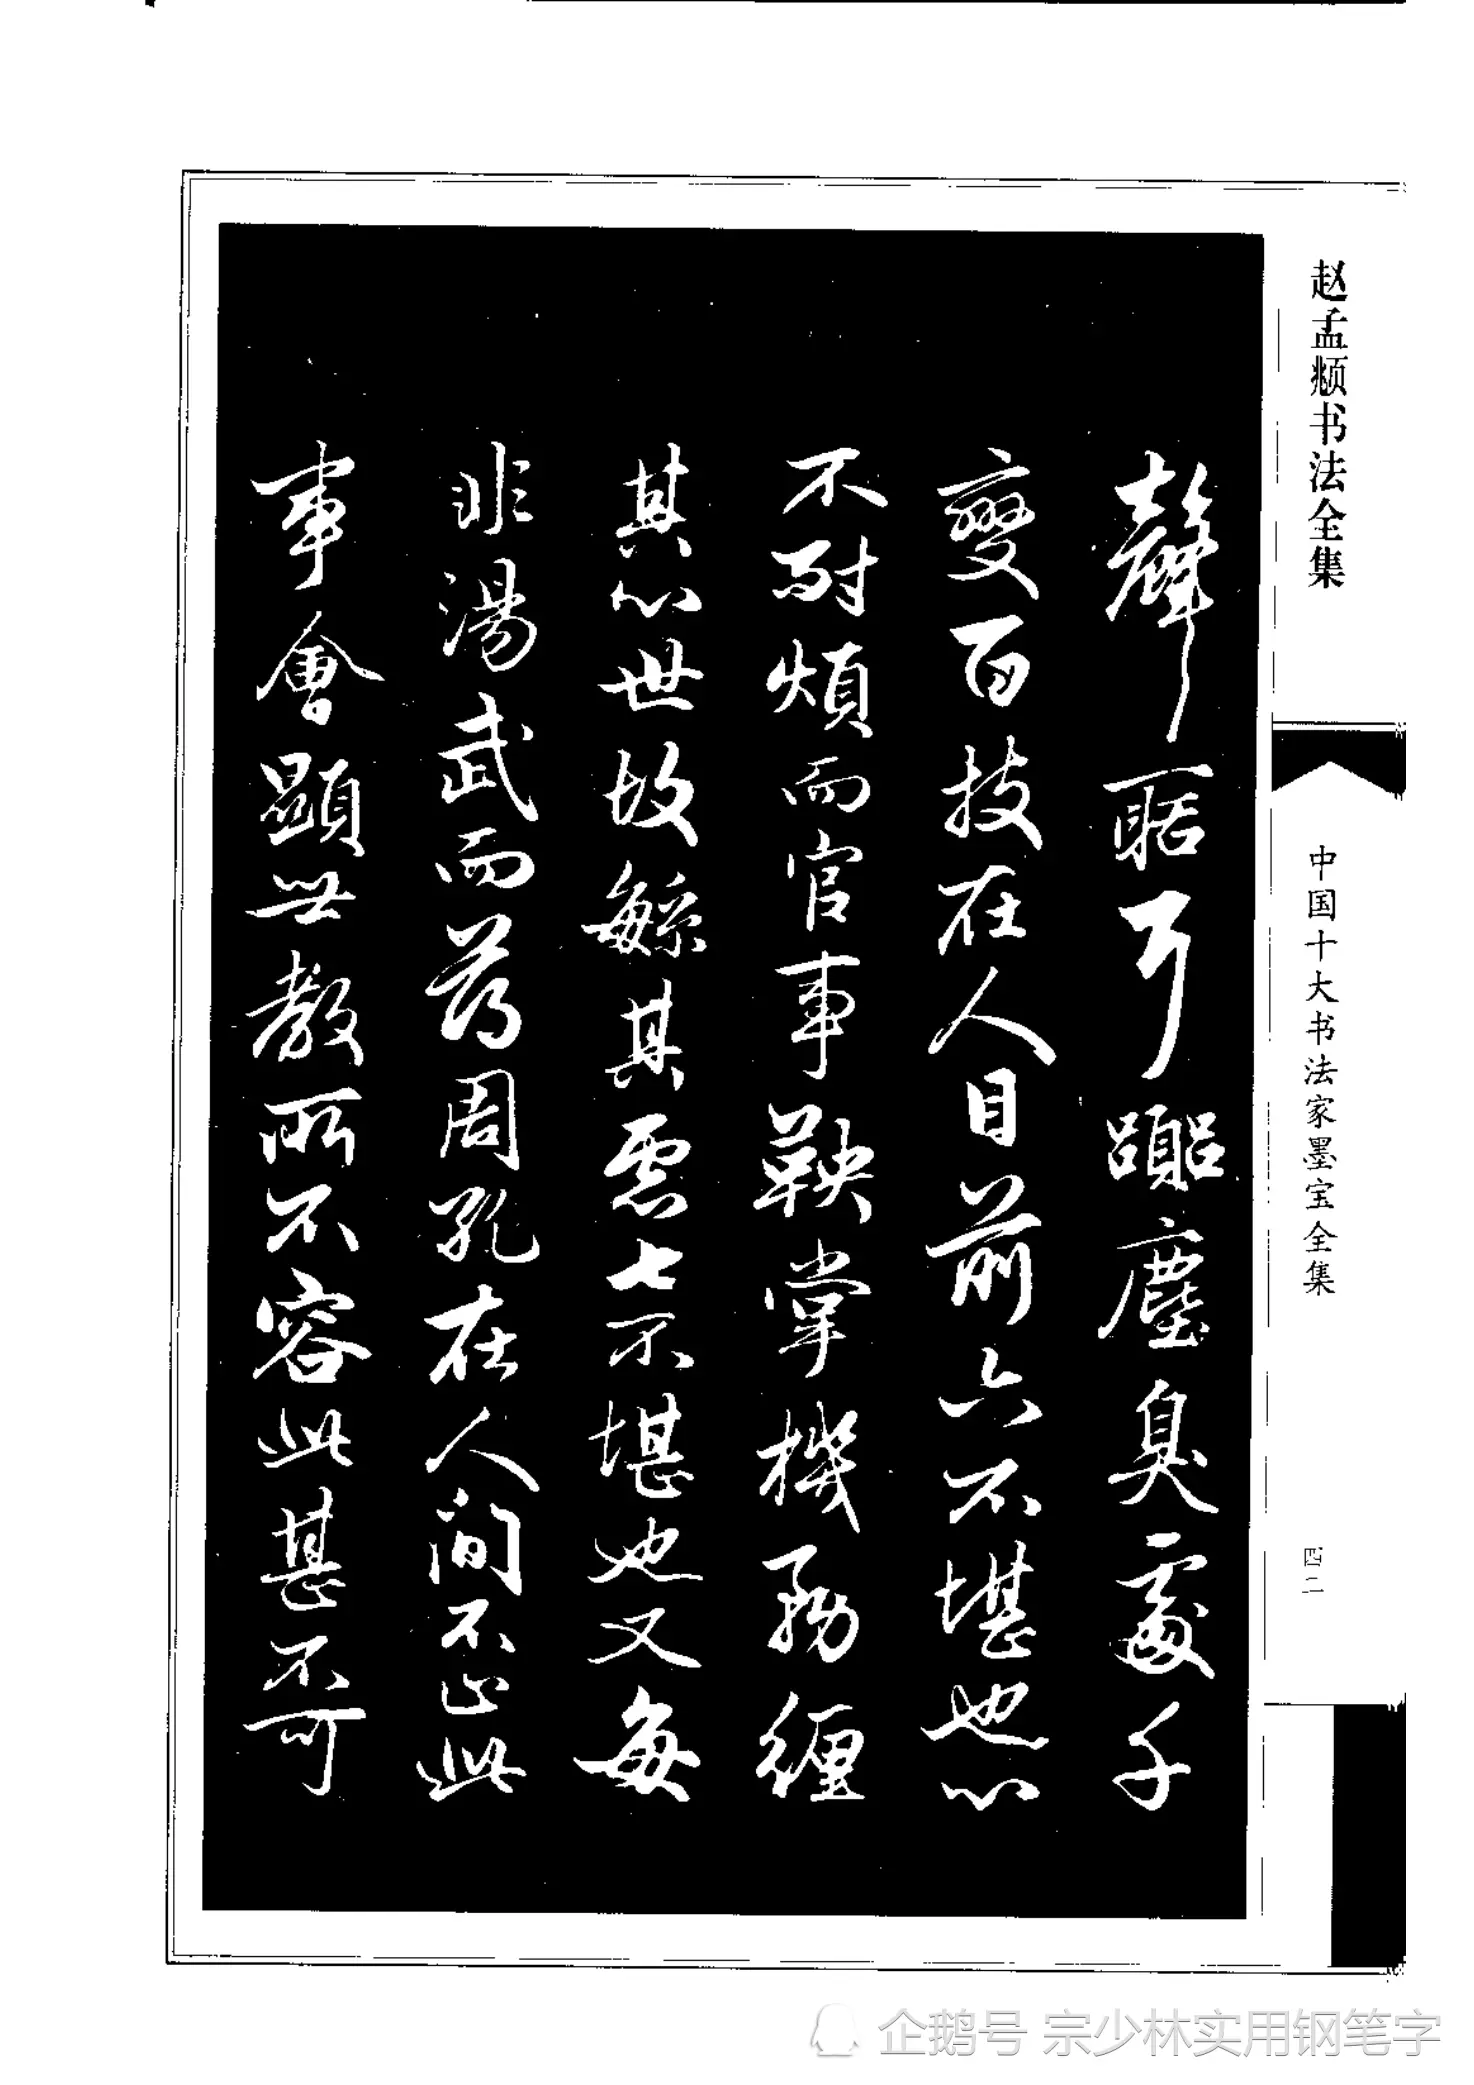 赵孟頫书法全集
中国十大书法家墨宝全集
四二
聲聒耳囂塵臭處千
變百技在人目前六不堪也心
不耐煩而官事鞅掌機務纏
其心世故緐其慮七不堪也又每
非湯武而薄周孔在人間不止此
事會顯世教所不容此甚不可
企鹅号 宗少林实用钢笔字